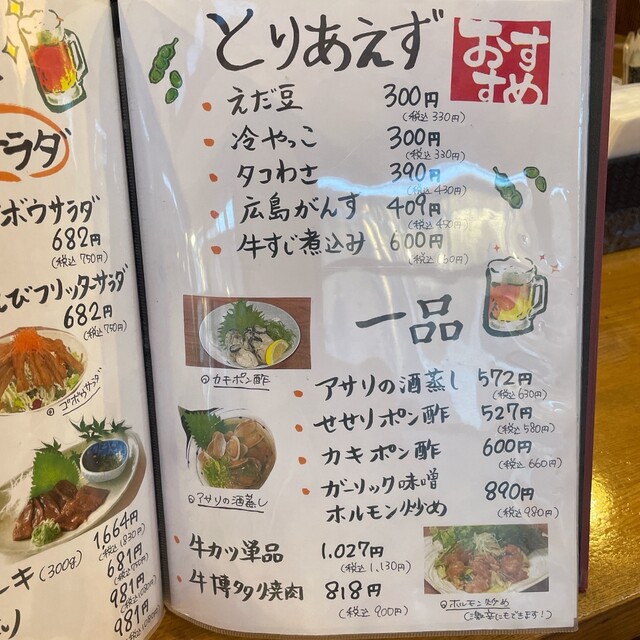 ラダ
ボウサラダ
682円
(税込750円)
えびフリッターサラダ
682円
(税込750円)
ゴボウサラダ
キ(300g)
1,664円
(税込1,830円)
681円
(税込750円)
981円
981円
とりあえず
おすすめ
えだ豆 300円
(税込330円)
冷やっこ 300円
(税込330円)
タコわさ 390円
(税込430円)
広島がんす 409円
(税込450円)
牛すじ煮込み 600円
一品
カキポン酢
アサリの酒蒸し 572円
(税込630円)
せせりポン酢 527円
(税込580円)
カキポン酢 600円
(税込660円)
アサリの酒蒸し
ガーリック味噌
ホルモン炒め 890円
(税込980円)
牛カツ単品 1,027円
(税込1,130円)
牛博多タタキ焼肉 818円
(税込900円)
ホルモン炒め
(激辛にもできます!)